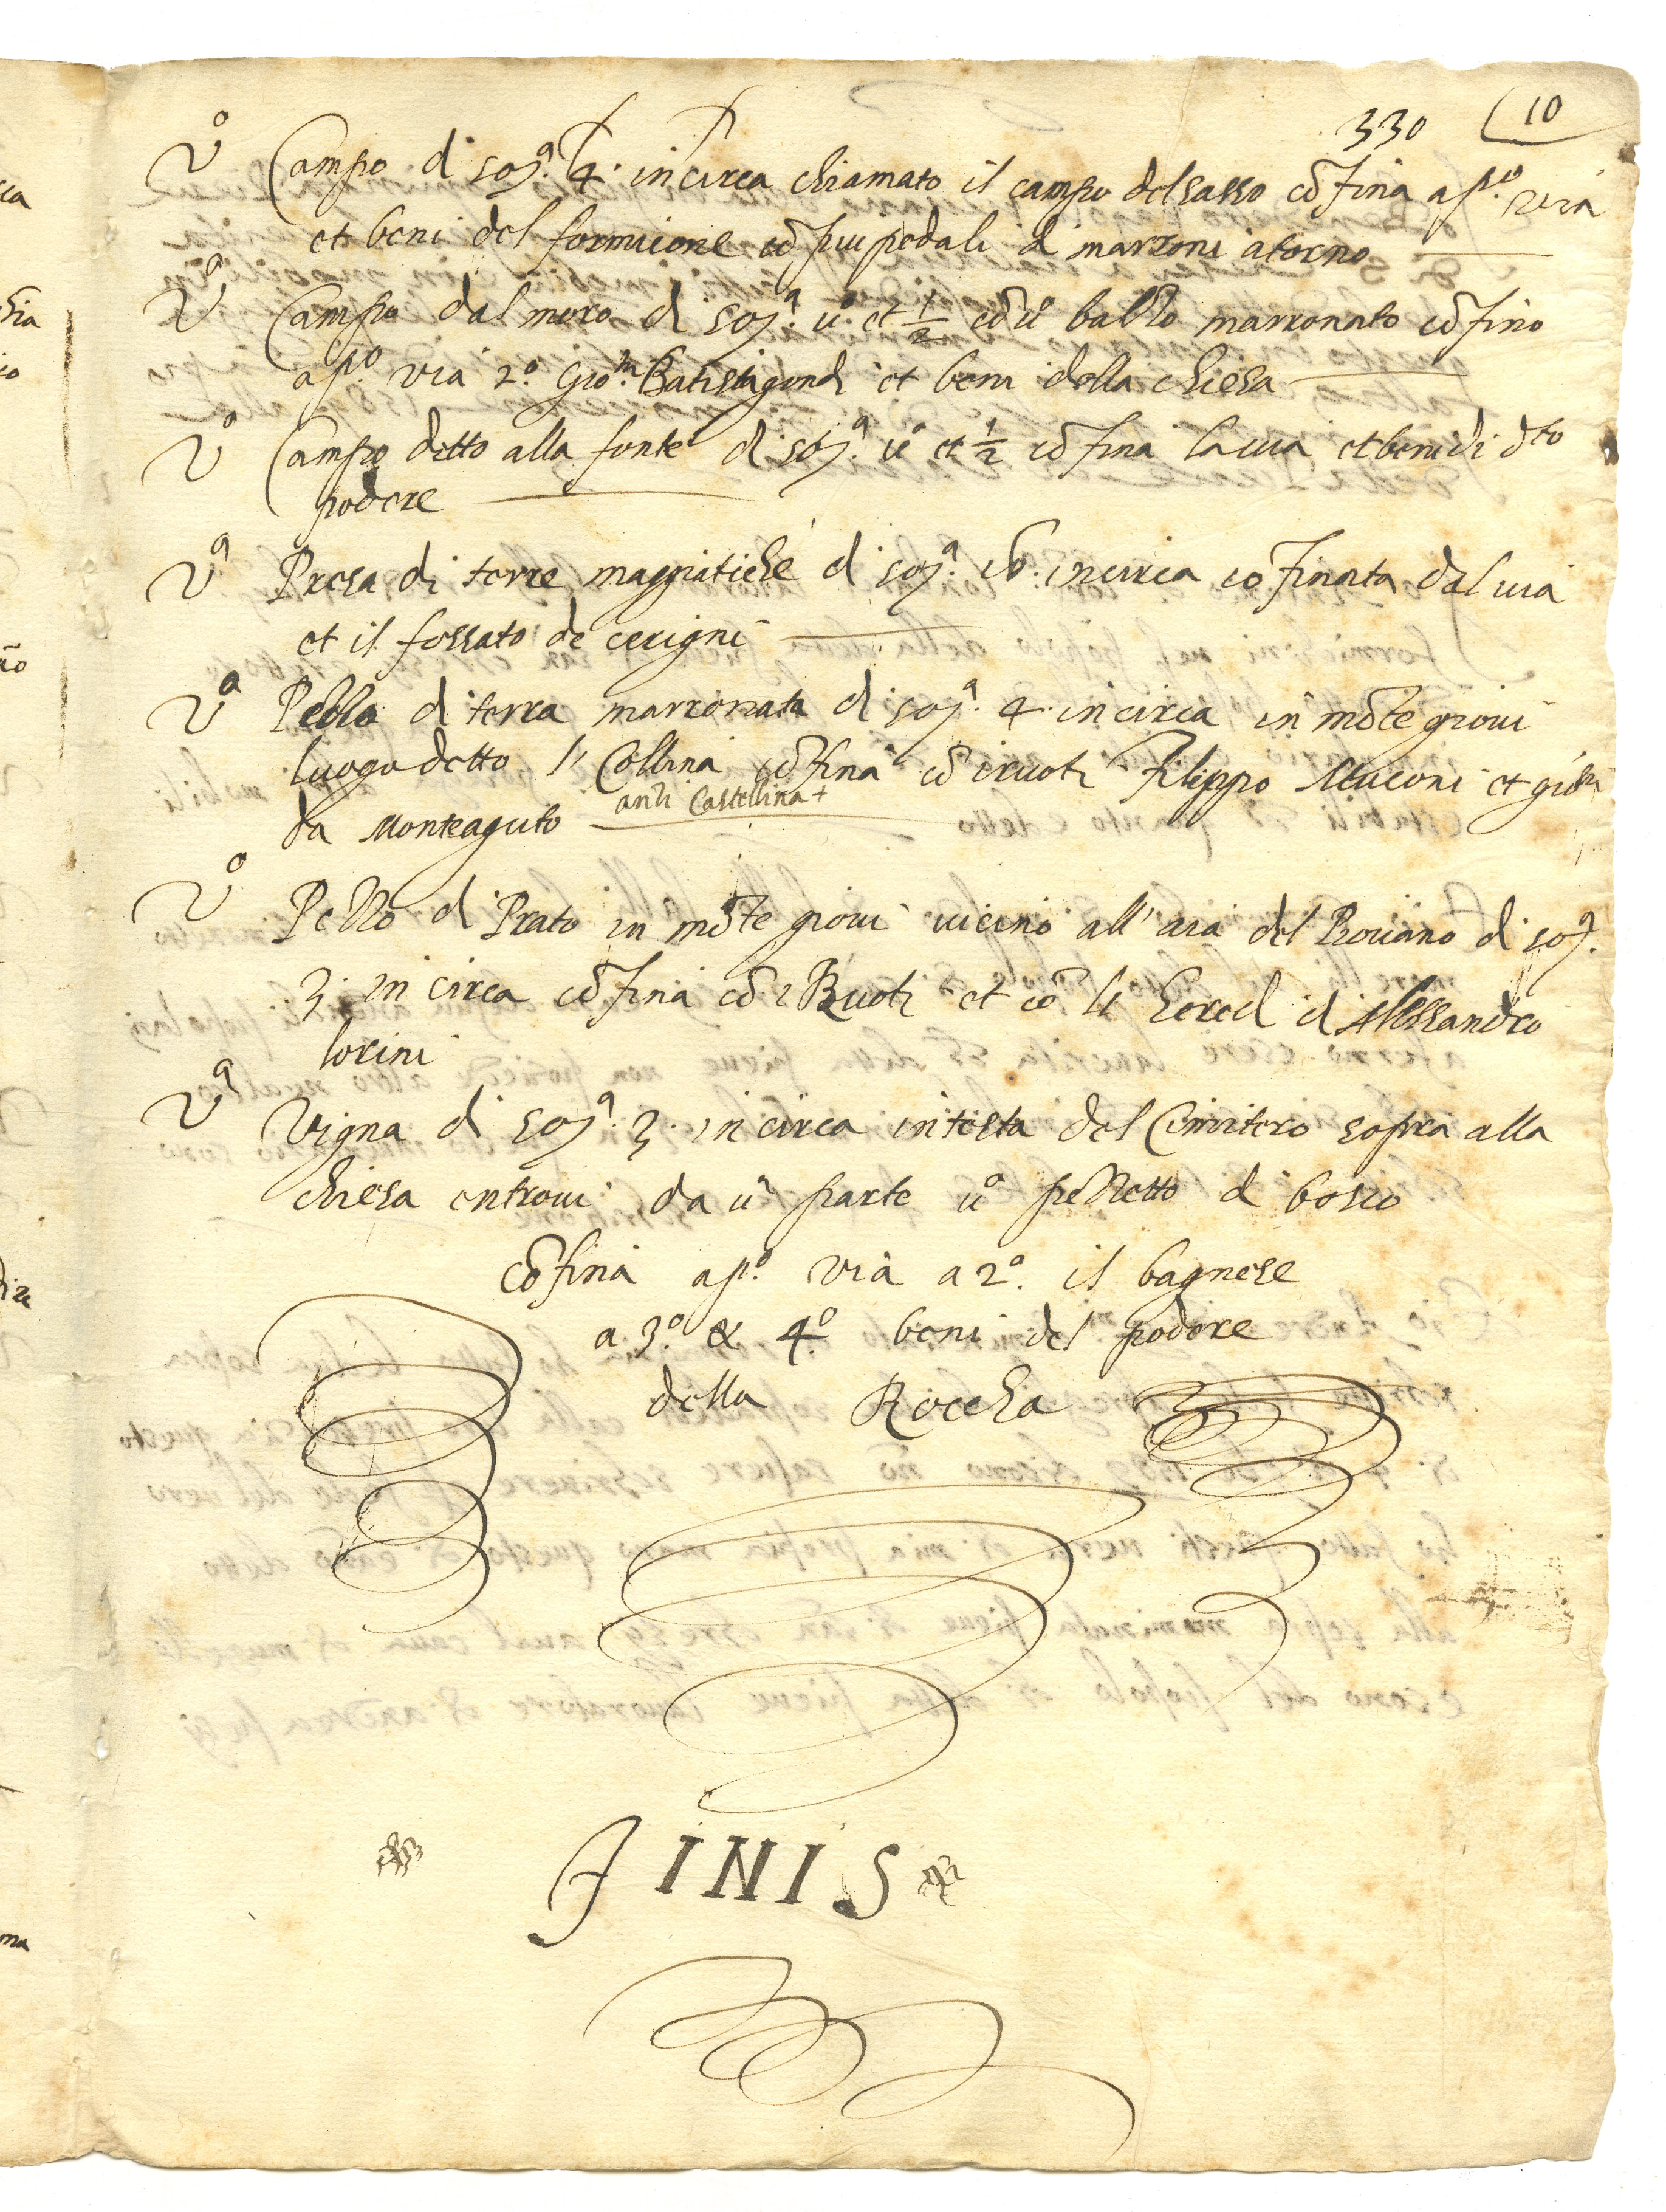 330 10
Vº Campo di soῃᵃ. 4. in circa chiamato il campo del sasso cō fina a pº. via
et beni del formicone cō piu pedali di marroni atorno
Vº Campo dal moro di soῃᵃ. uº et ½ cō uº balzo marronato cō fino
a pº via 2º. Giouⁿⁱ Batista gondi et beni della chiesa
Vº Campo detto alla fonte di soῃᵃ. uº et ½ cō fina la uia et beni di dto
podere
Vᵃ Presa di terre di soῃᵃ. incirca cō finata dal uia
et il fossato de cerigni
Vº Pezzo di terra marronata di soῃᵃ. 4. in circa in mōte gioui
luogo detto li Collina cō fina cō i ruoti Filippo et
anzi Castellina +
da Monteaguto
Vº Pezzo di Prato in mōte gioui uicino all' aia del Rouiano di soῃᵃ.
3. in circa cō fina cō i Ruoti et cō li Heredi di Alessandro
lorini
Vᵃ Vigna di soῃᵃ. 3. in circa in testa del Cimitero sopra alla
chiesa entroui da ū parte uº pezzetto di bosco
cō fina a pº. via a 2º. il bagnese
a 3º. & 4º. beni del podere
della Roccha
FINIS